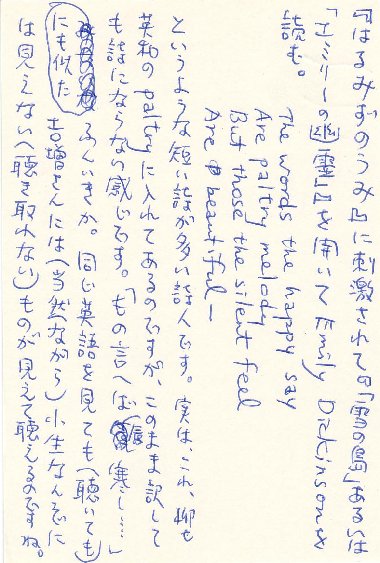 『はるみずのうみ』に刺激されて『「雪の島」あるいは
「エミリーの幽霊」』を開いてEmily Dickinsonを
読む。
The words the happy say
Are paltry melody
But those the silent feel
Are beautiful—
というような短い詩が多い詩人です。実は、これ、
英和のpaltryに入れてあるのですが、このまま訳して
も詩にならない感じです。「もの言へば(唇)寒し……」
にも似た
ふんいきか。同じ英語を見ても(聴いても)
吉増さんには(当然ながら)小生なんぞに
は見えない(聴き取れない)ものが見えて聴えるのですね。